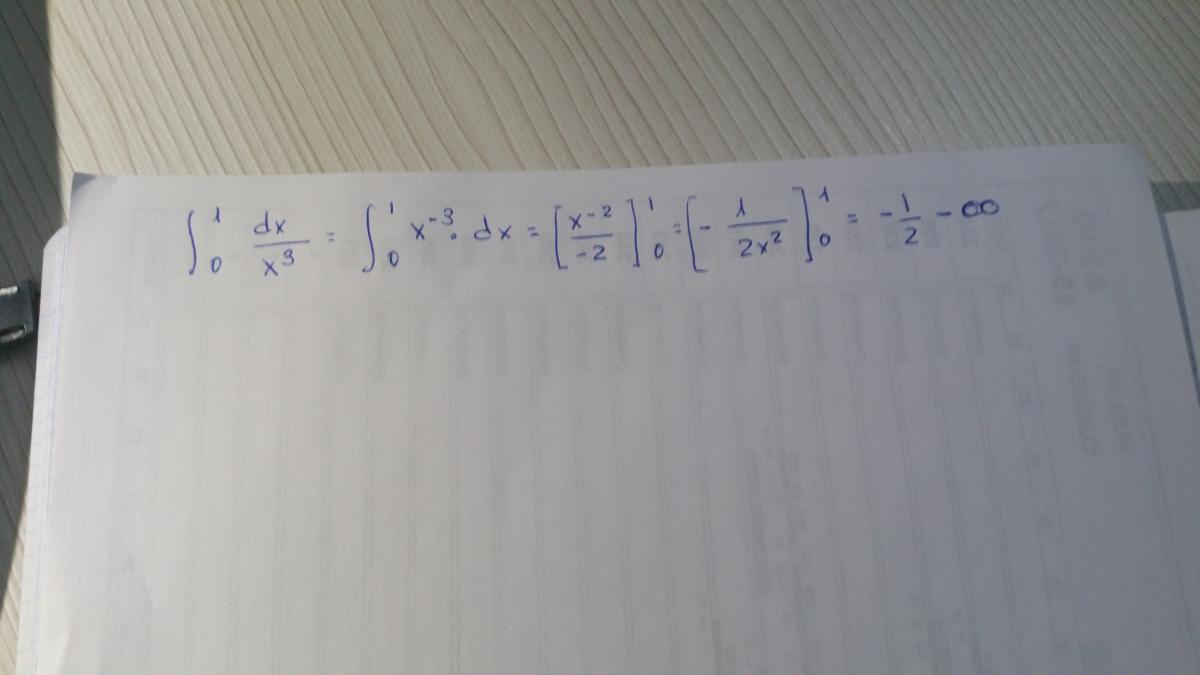 ∫₀¹ dx/x³ = ∫₀¹ x⁻³ · dx = [x⁻²/-2]₀¹ = [- 1/2x²]₀¹ = - 1/2 - ∞